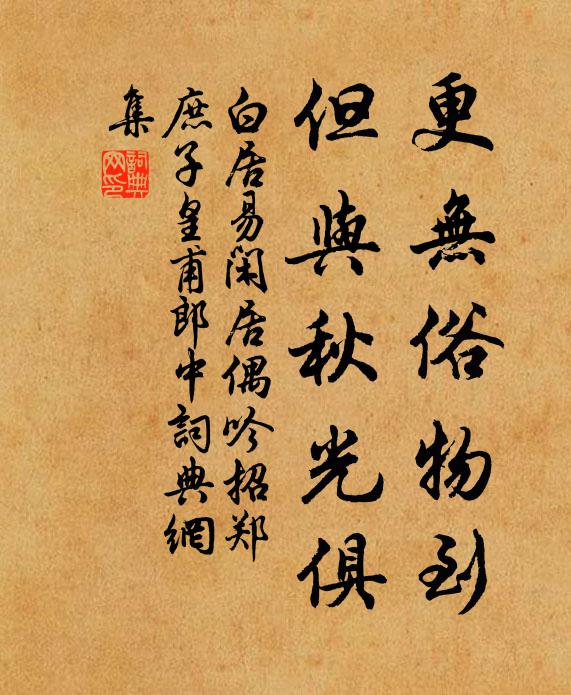 更無俗物到
但與秋光俱
白居易閑居偶吟招郑
庶子皇甫郎中詞典網
集
詞典
网印